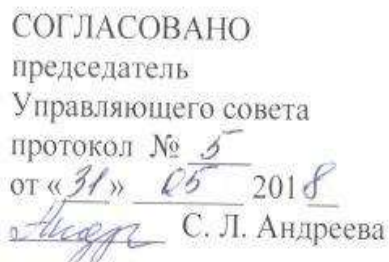 СОГЛАСОВАНО
председатель
Управляющего совета
протокол № 5
от «31» 05 2018
С. Л. Андреева